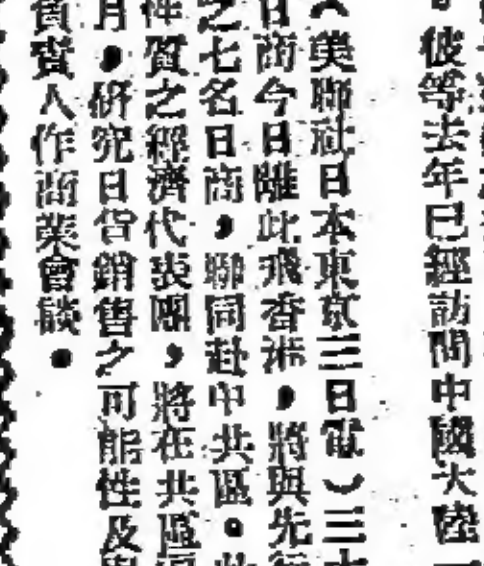 彼等去年已經訪問中國大陸一
（美聯社日本東京三日電）三
日商今日離此飛香港，將與先行
之七名日商，聯同赴中共區。此
性質之經濟代表團，將在共區
月，研究日貨銷售之可能性及與
負責人作商業會談。